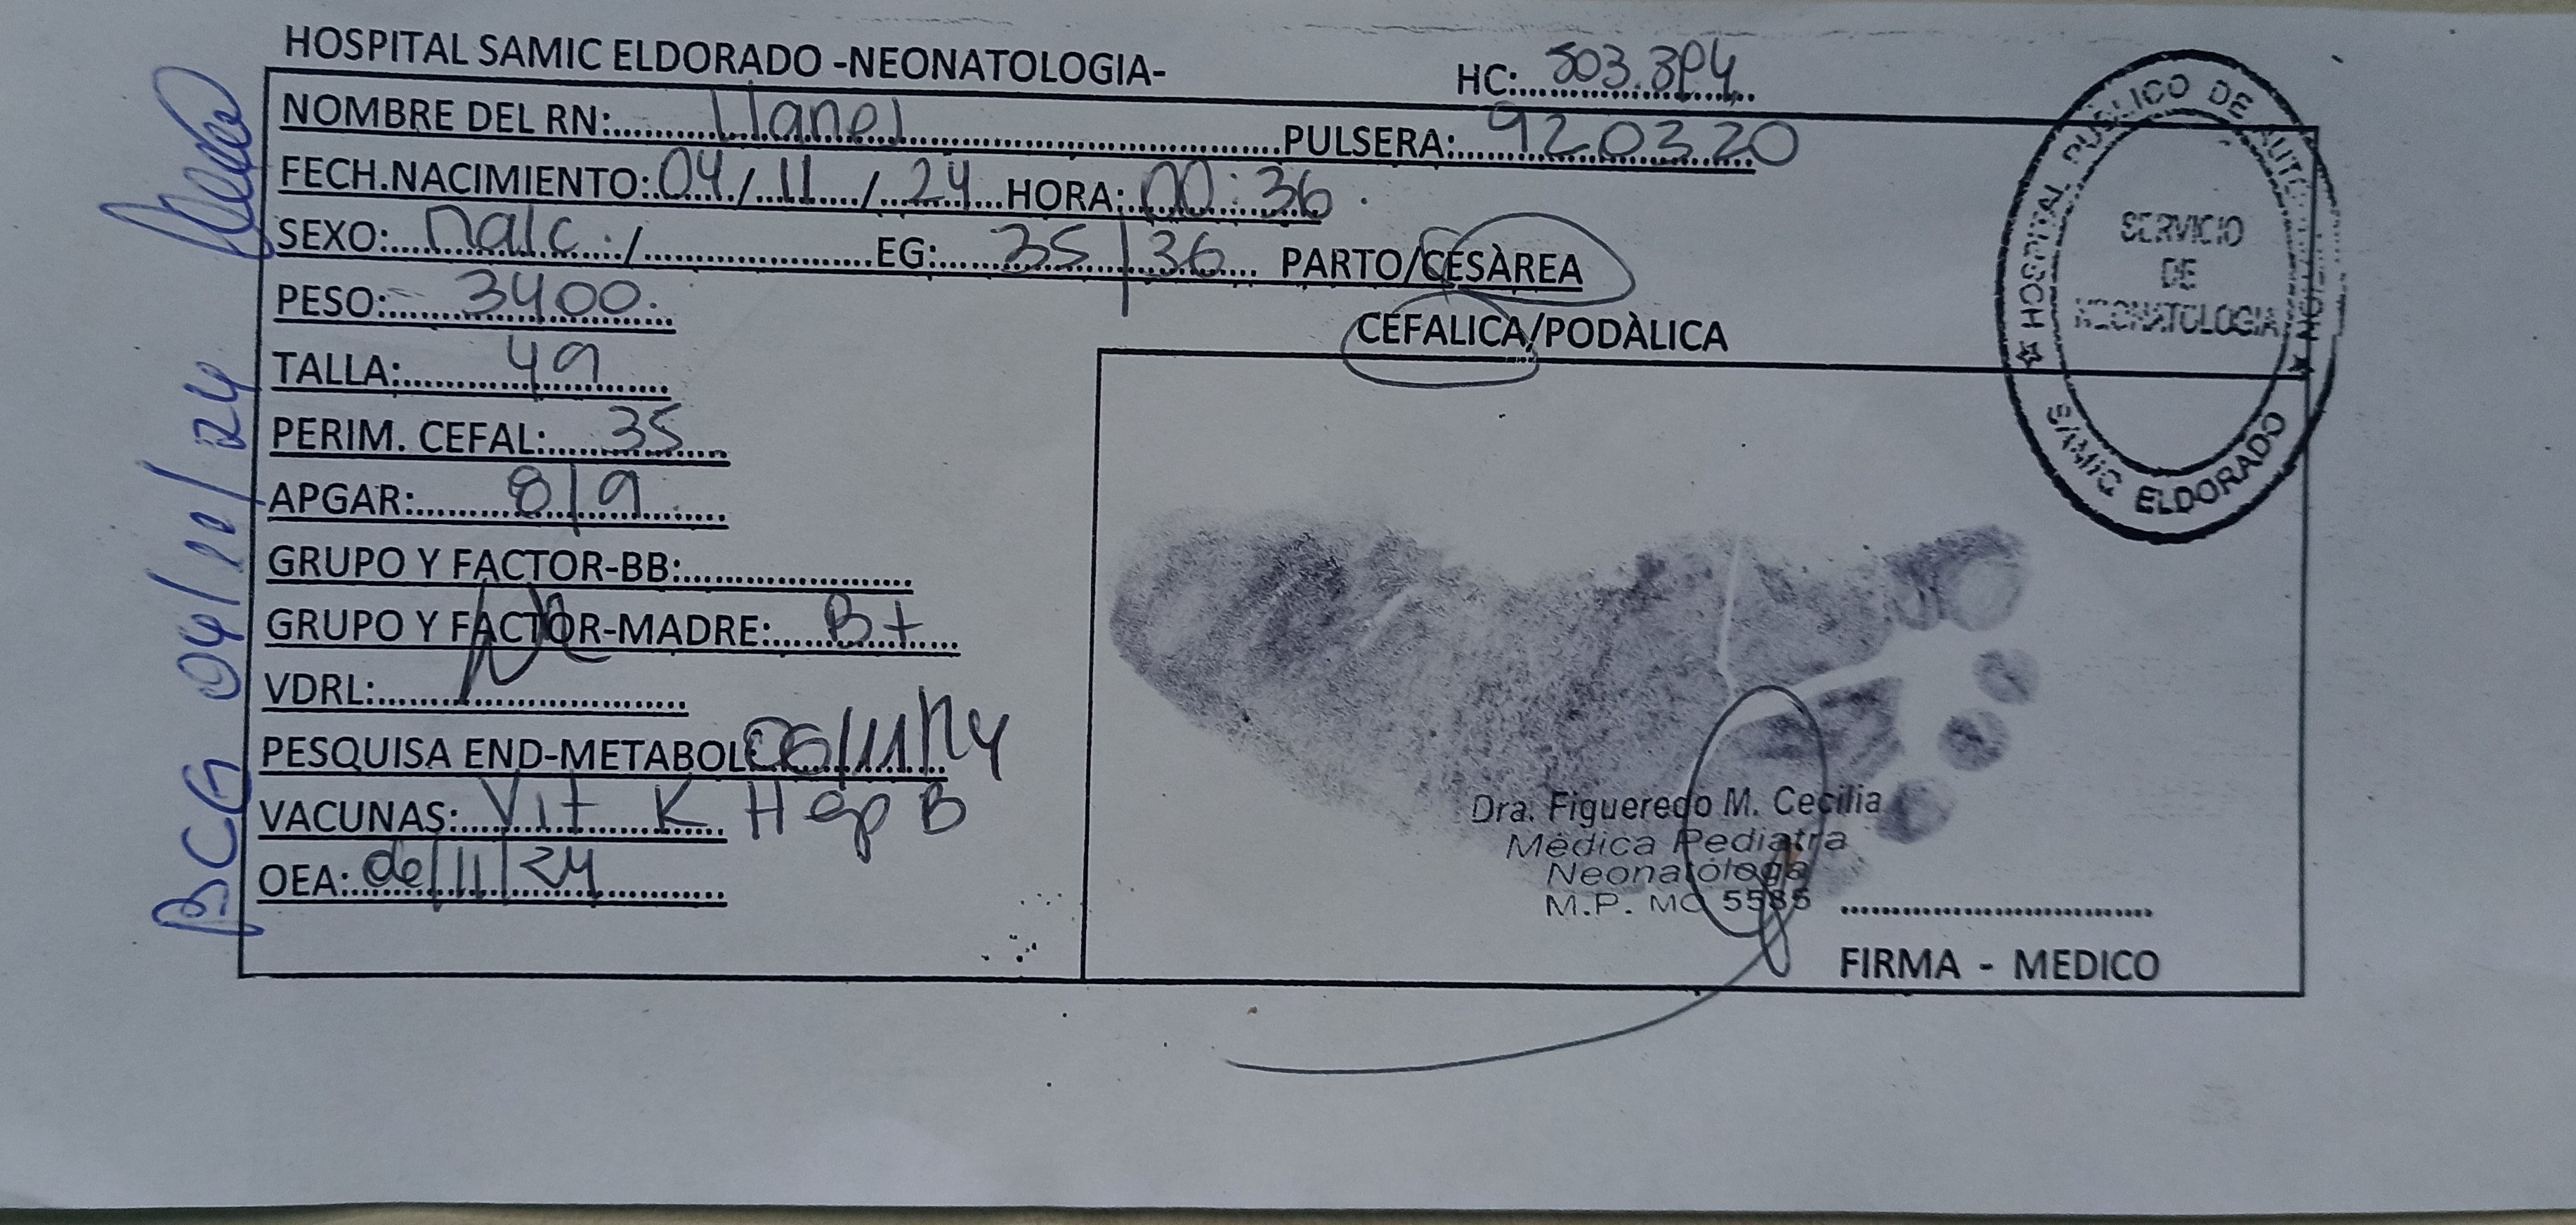 HOSPITAL SAMIC ELDORADO -NEONATOLOGIA- HC:
NOMBRE DEL RN: PULSERA: 920320
FECH.NACIMIENTO: 04/11/24 HORA: 00:36
SEXO: EG: 35/36 PARTO/CESÀREA
CEFALICA/PODÀLICA
PESO: 3400.
TALLA: 49
PERIM. CEFAL: 35
APGAR: 8/9
GRUPO Y FACTOR-BB:
GRUPO Y FACTOR-MADRE: B+
VDRL:
PESQUISA END-METABOL
VACUNAS: Vit K Hep B
OEA:
BCG
HOSPITAL PÚBLICO DE
SAMIC ELDORADO
SERVICIO
DE
NEONATOLOGIA
Dra. Figueredo M. Cecilia
Médica Pediatra
Neonatóloga
M.P. 5585
FIRMA - MEDICO